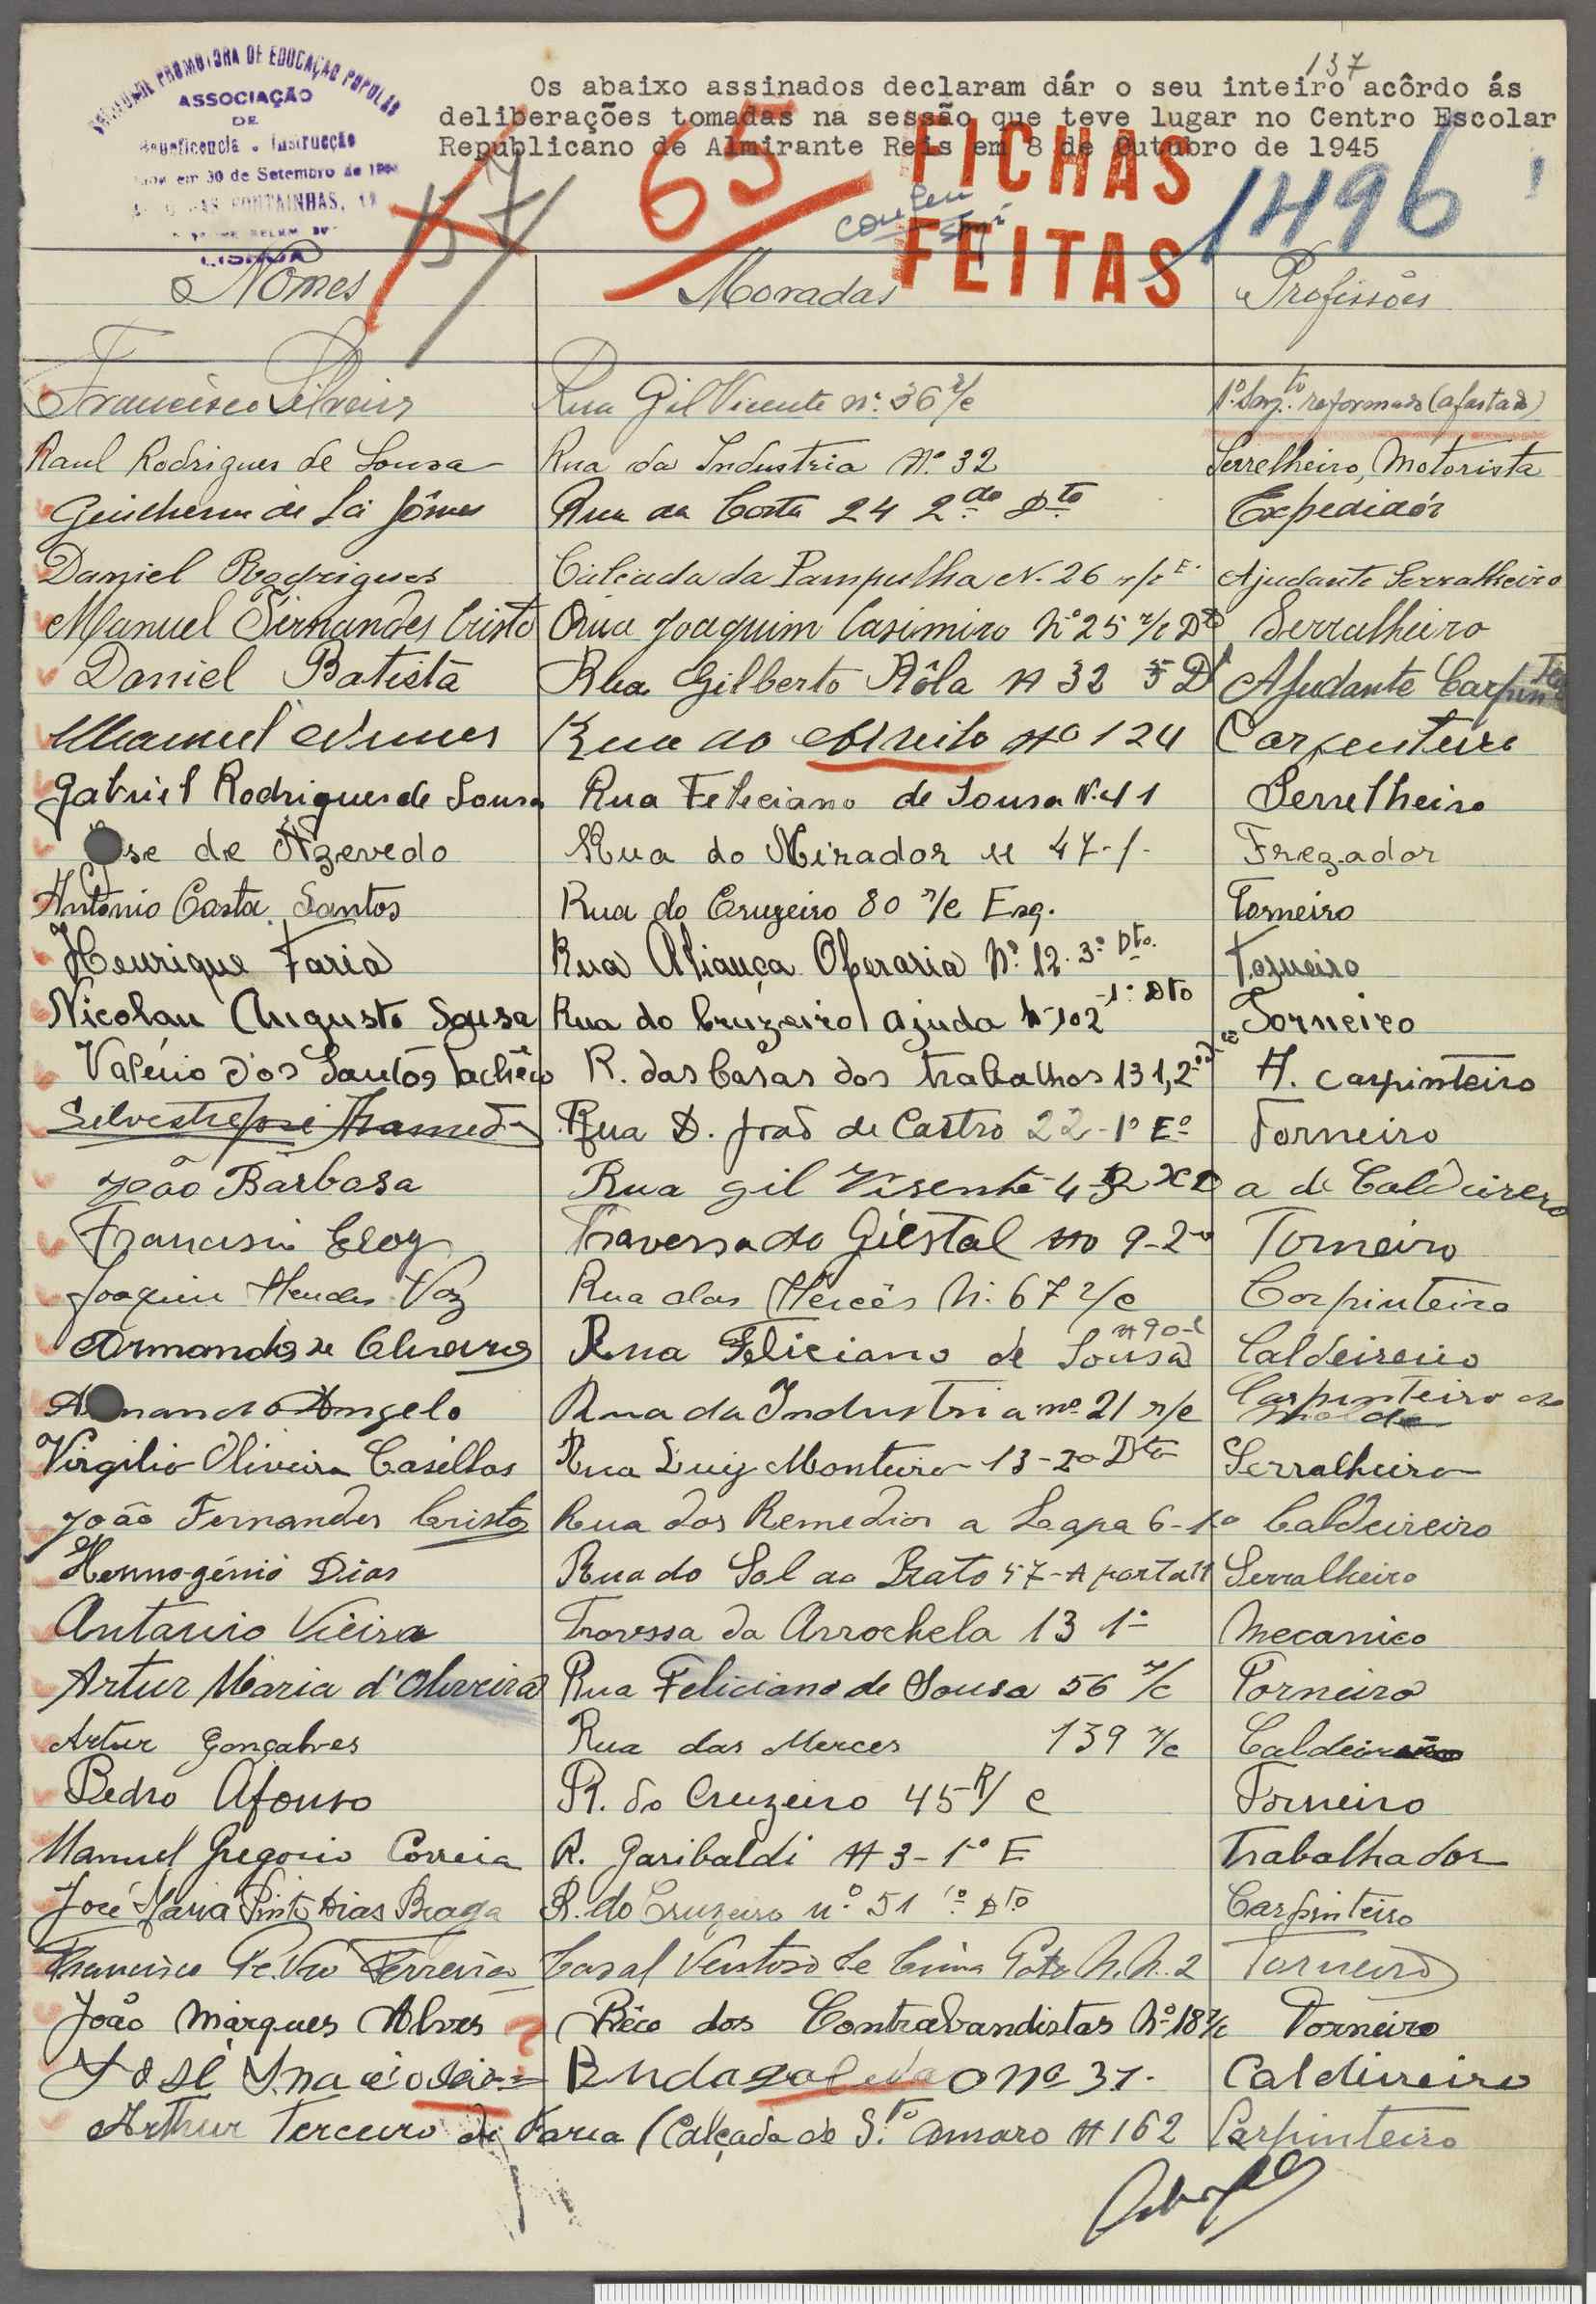 PROMOTORA DE EDUCAÇÃO POPULAR
ASSOCIAÇÃO
DE
Beneficencia e Instrucção
em 30 de Setembro de
FONTAINHAS,
LISBOA
137
Os abaixo assinados declaram dár o seu inteiro acôrdo ás
deliberações tomadas na sessão que teve lugar no Centro Escolar
Republicano de Almirante Reis em 8 de Outubro de 1945
57
65
FICHAS
FEITAS
1496
Nomes Moradas Profissões
Francisco Silveira Rua Gil Vicente nº 36 r/c 1º Sarg.to reformado (afastado)
Raul Rodrigues de Sousa Rua da Industria Nº 32 Serrelheiro, Motorista
Guilherme de Sá Gomes Rua da Costa 24 2do Dto Expedidór
Daniel Rodrigues Calçada da Pampulha N. 26 r/c E. Ajudante Serralheiro
Manuel Fernandes Cristo Rua Joaquim Casimiro Nº 25 r/c Dto Serralheiro
Daniel Batista Rua Gilberto Rôla N 32 Dt Ajudante Carpinteiro
Manuel Nunes Rua do nº 124 Carpenteiro
Gabriel Rodrigues de Sousa Rua Feleciano de Sousa N. 41 Serrelheiro
se de Azevedo Rua do Mirador 47 Frezador
António Costa Santos Rua do Cruzeiro 80 r/c Esq. Torneiro
Henrique Faria Rua Aliança Operaria Nº 12. 3º Dto. Torneiro
Nicolau Augusto Sousa Rua do Cruzeiro ajuda N-102 -1º Dto Torneiro
Valério dos Santos R. das Casas dos trabalhos 131, 2º A. carpinteiro
Silvestre José Rua D. João de Castro 22-1º Eº Torneiro
João Barbosa Rua gil Visente a de Caldeirero
Francisco Eloy Travessa do Giestal no 9-2º Torneiro
Joaquim Mendes Vaz Rua das Mercês N. 67 r/c Corpinteiro
Armando de Oliveira Rua Feliciano de Sousa Caldeireiro
A mando Angelo Rua da Industria nº 21 r/c Carpinteiro de molde
Virgilio Oliveira Casellas Rua Luiz Monteiro 13-2º Dto Serralheiro
João Fernandes Cristo Rua dos Remedios a Lapa 6-1º Caldeireiro
Hermogénio Dias Rua do Sol ao Rato 57-A porta 11 Serralheiro
Antonio Vieira Travessa da Arrochela 13 1º Mecanico
Artur Maria d'Oliveira Rua Feliciano de Sousa 56 r/c Torneiro
Artur Gonçalves Rua das Merces 139 r/c
Pedro Afonso R. do Cruzeiro 45 R/c Torneiro
Manuel Gregorio Correia R. Garibaldi N 3-1º E Trabalhador
José Maria Pinto Dias Braga R. do Cruzeiro nº 51 1º Dto Carpinteiro
Francisco Ferreira Casal Ventoso de Cima 2 Torneiro
João Marques Alves ? Bêco dos Contrabandistas Nº 18 r/c Torneiro
José Inacio nº 31. Caldireiro
Arthur Terceiro de Faria Calçada de S.to Amaro N 162 Carpinteiro